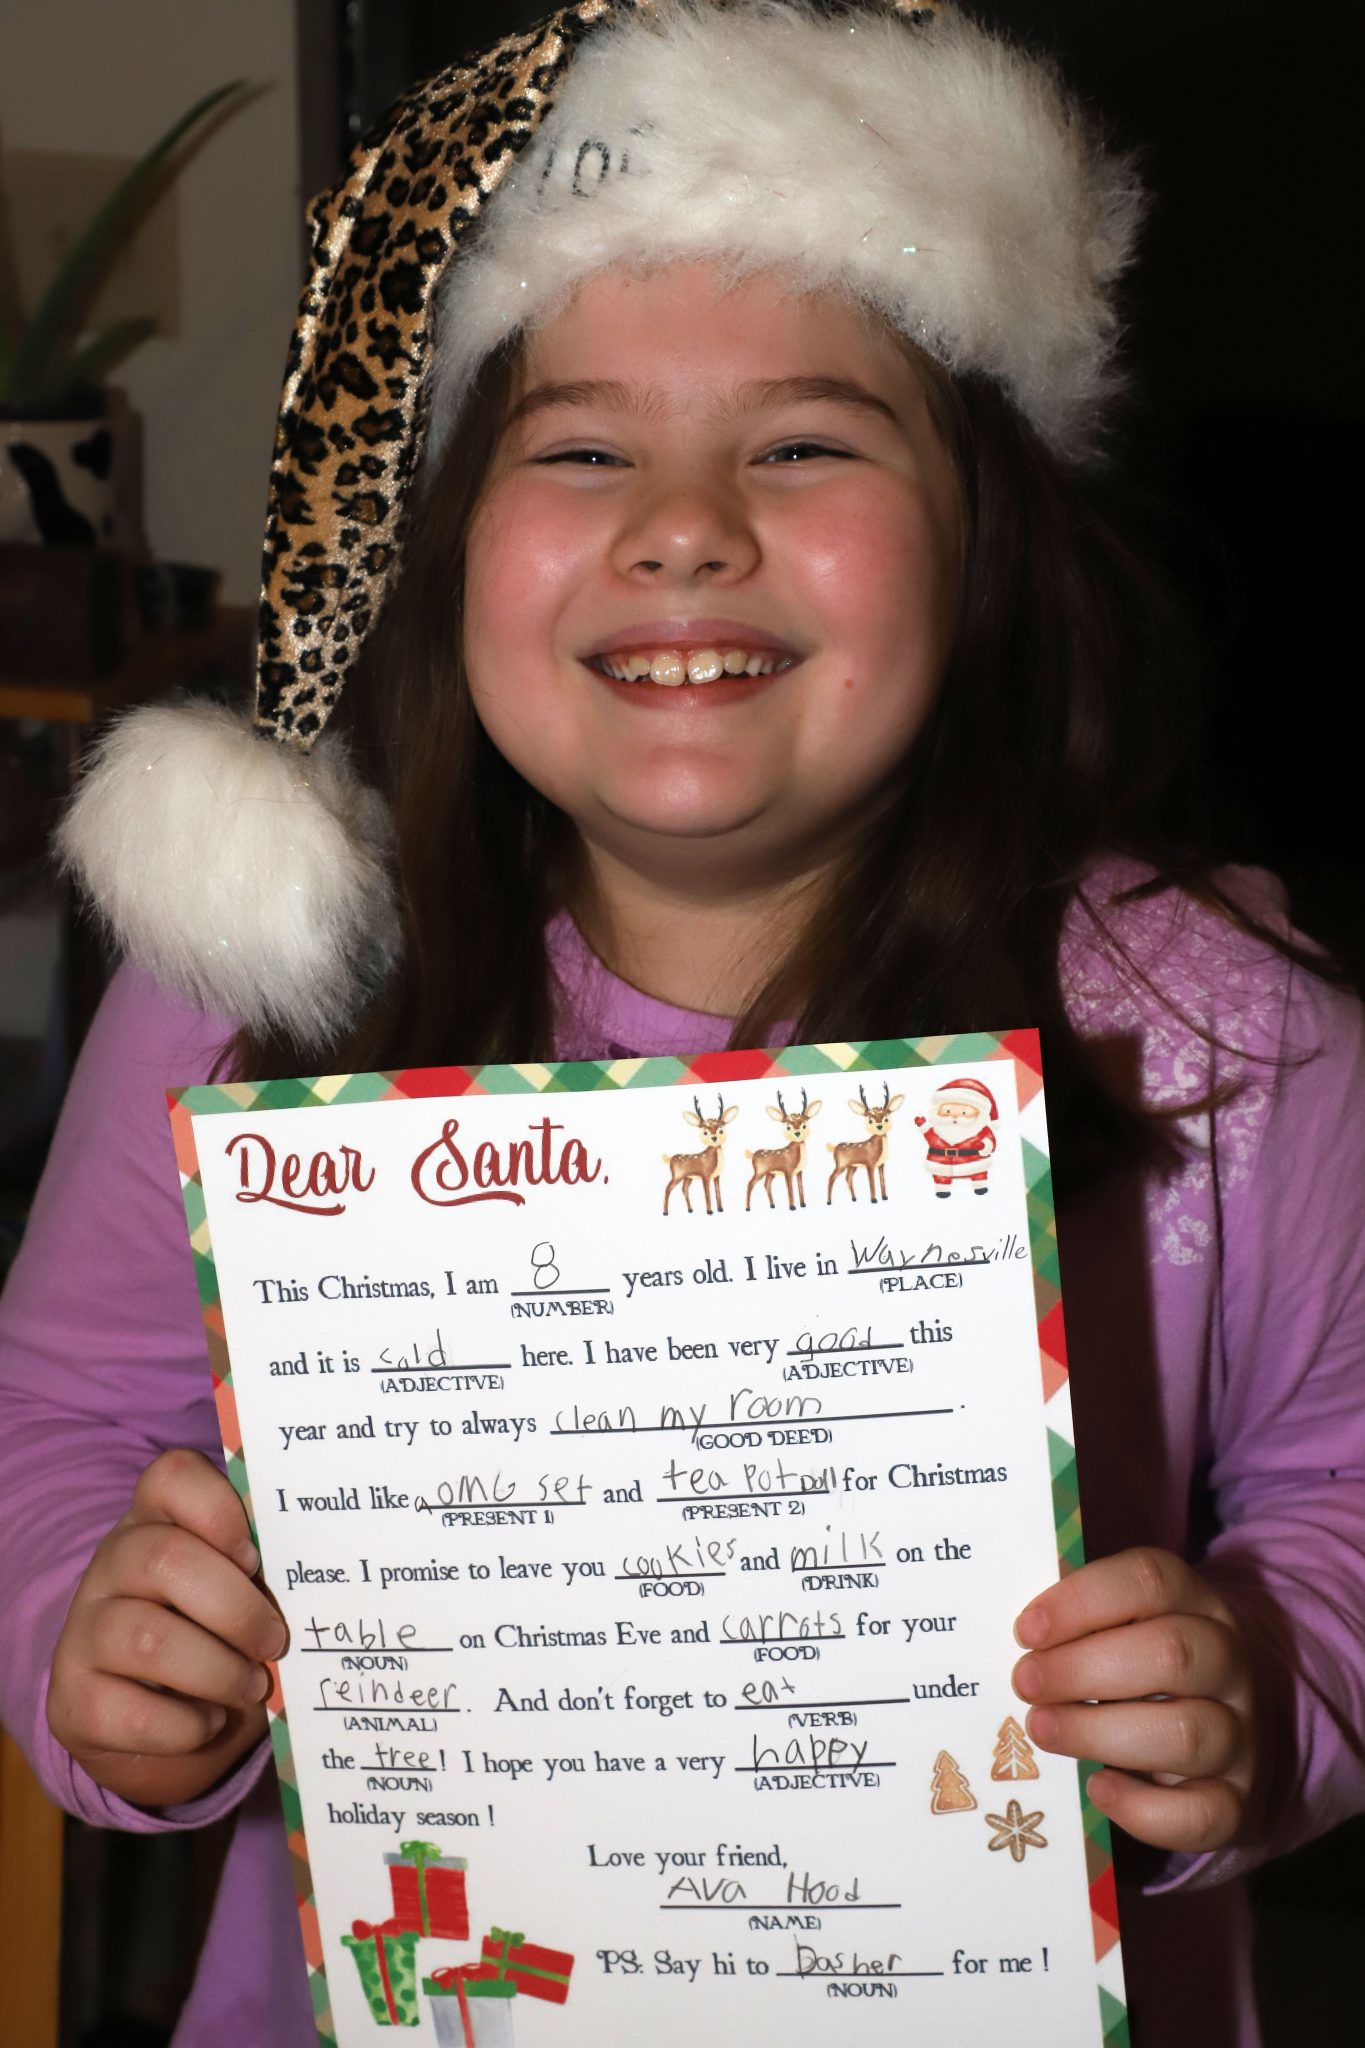 Dear Santa,
This Christmas, I am 8 years old. I live in Waynesville
(NUMBER) (PLACE)
and it is cold here. I have been very good this
(ADJECTIVE) (ADJECTIVE)
year and try to always clean my room.
(GOOD DEED)
I would like a OMG set and tea pot Doll for Christmas
(PRESENT 1) (PRESENT 2)
please. I promise to leave you cookies and milk on the
(FOOD) (DRINK)
table on Christmas Eve and carrots for your
(NOUN) (FOOD)
reindeer. And don't forget to eat under
(ANIMAL) (VERB)
the tree! I hope you have a very happy
(NOUN) (ADJECTIVE)
holiday season!
Love your friend,
Ava Hood
(NAME)
PS: Say hi to Dasher for me!
(NOUN)